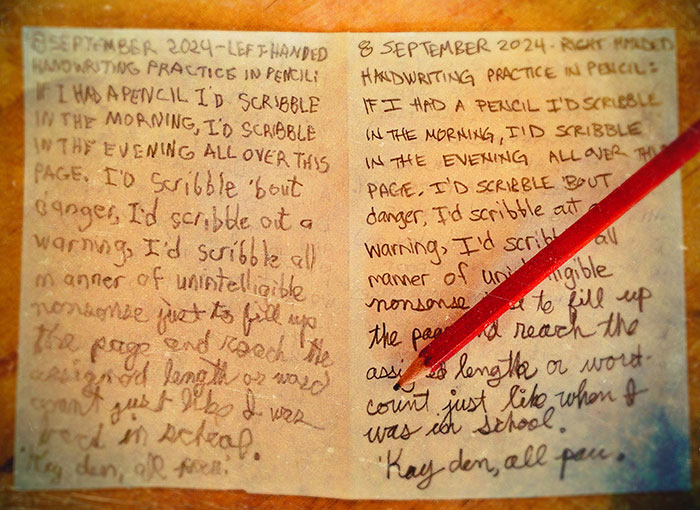 8 SEPTEMBER 2024 - LEFT HANDED
HANDWRITING PRACTICE IN PENCIL:
IF I HAD A PENCIL I'D SCRIBBLE
IN THE MORNING, I'D SCRIBBLE
IN THE EVENING ALL OVER THIS
PAGE. I'D scribble 'bout
danger, I'd scribble out a
warning, I'd scribble all
manner of unintelligible
nonsense just to fill up
the page and reach the
assigned length or word
count just like I was
in school.
'Kay den, all
8 SEPTEMBER 2024 - RIGHT HANDED
HANDWRITING PRACTICE IN PENCIL:
IF I HAD A PENCIL I'D SCRIBBLE
IN THE MORNING, I'D SCRIBBLE
IN THE EVENING ALL OVER THIS
PAGE. I'D SCRIBBLE 'BOUT
danger, I'd scribble out a
warning, I'd scribble all
manner of unintelligible
nonsense to fill up
the page and reach the
length or word-
count just like when I
was in school.
'Kay den, all pau.